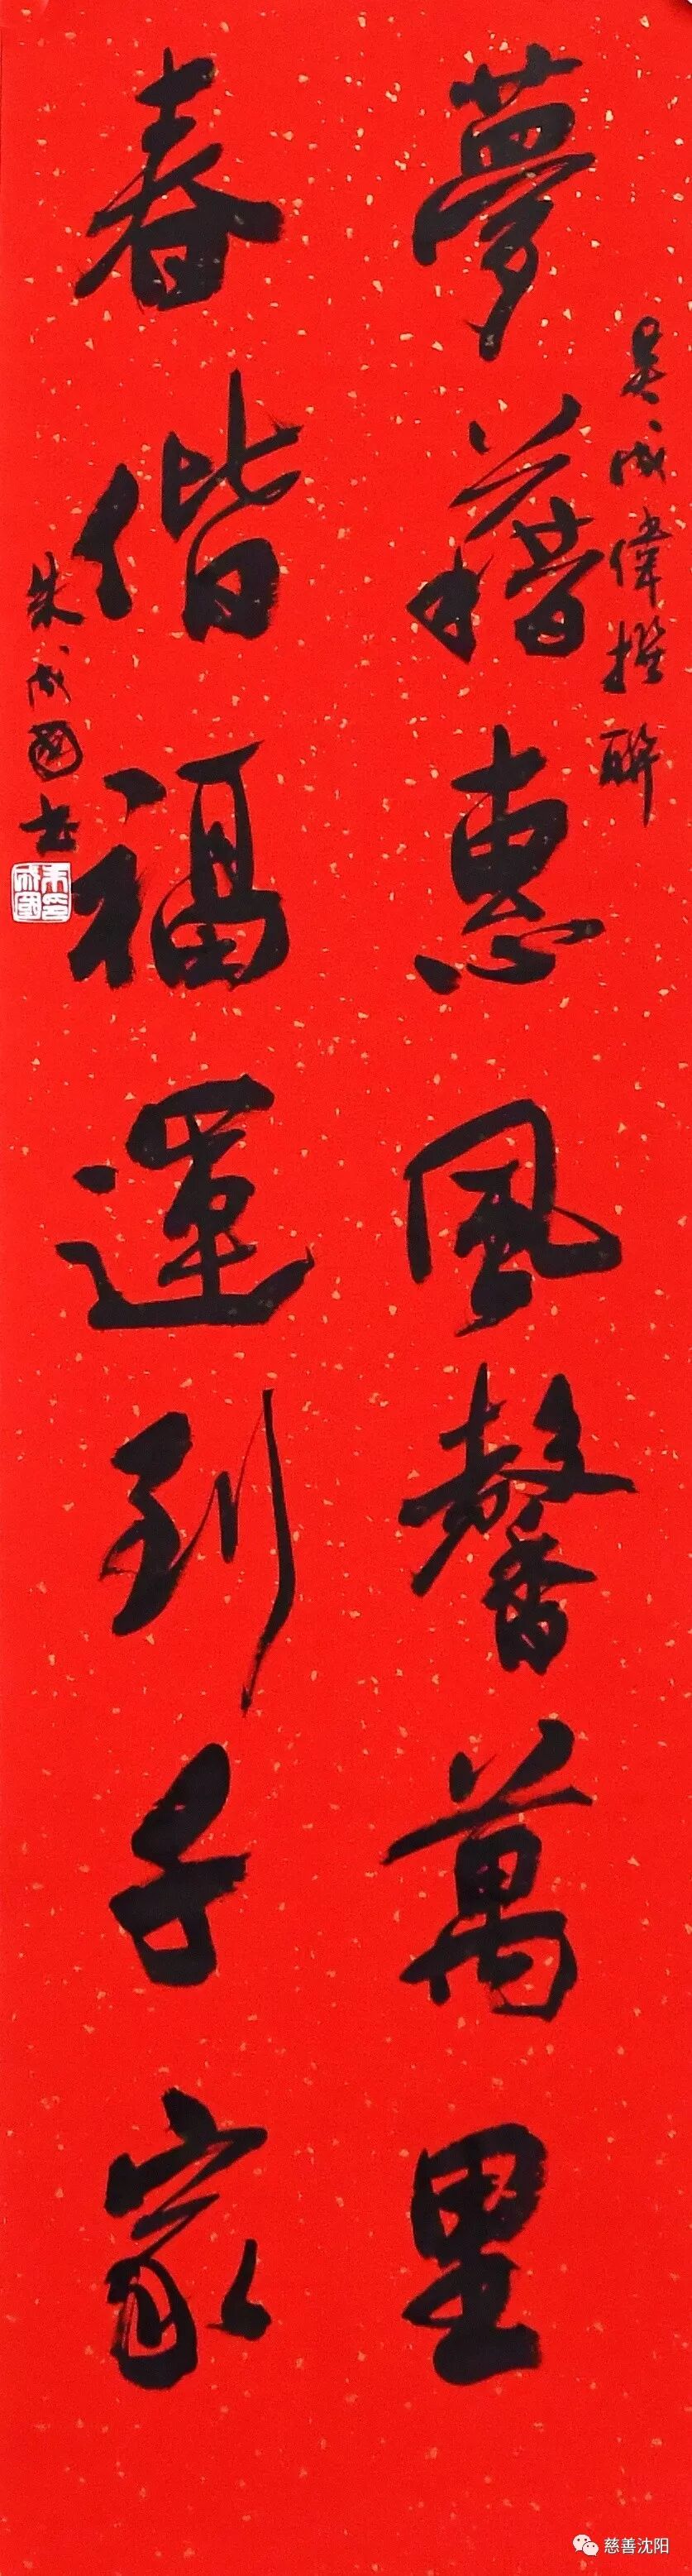 吳成偉撰聯
夢藉惠風馨萬里
春偕福運到千家
朱成國書
朱成國印
慈善沈阳